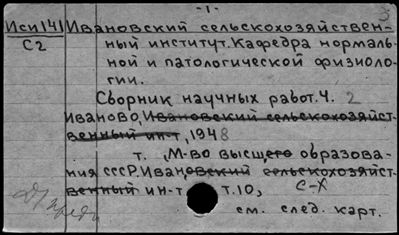 -1-
Иси 141 Ивановский сельскохозяйствен-
С2 ный институт. Кафедра нормаль-
ной и патологической физиоло-
гии.
Сборник научных работ. Ч. 2
Иваново, Ивановский сельскохозяйст-
венный ин-т, 1948
т. , М-во высщего образова-
ния СССР. Ивановский сельскохозяйст-
венный ин-т т. 10, с-х
см. след. карт.